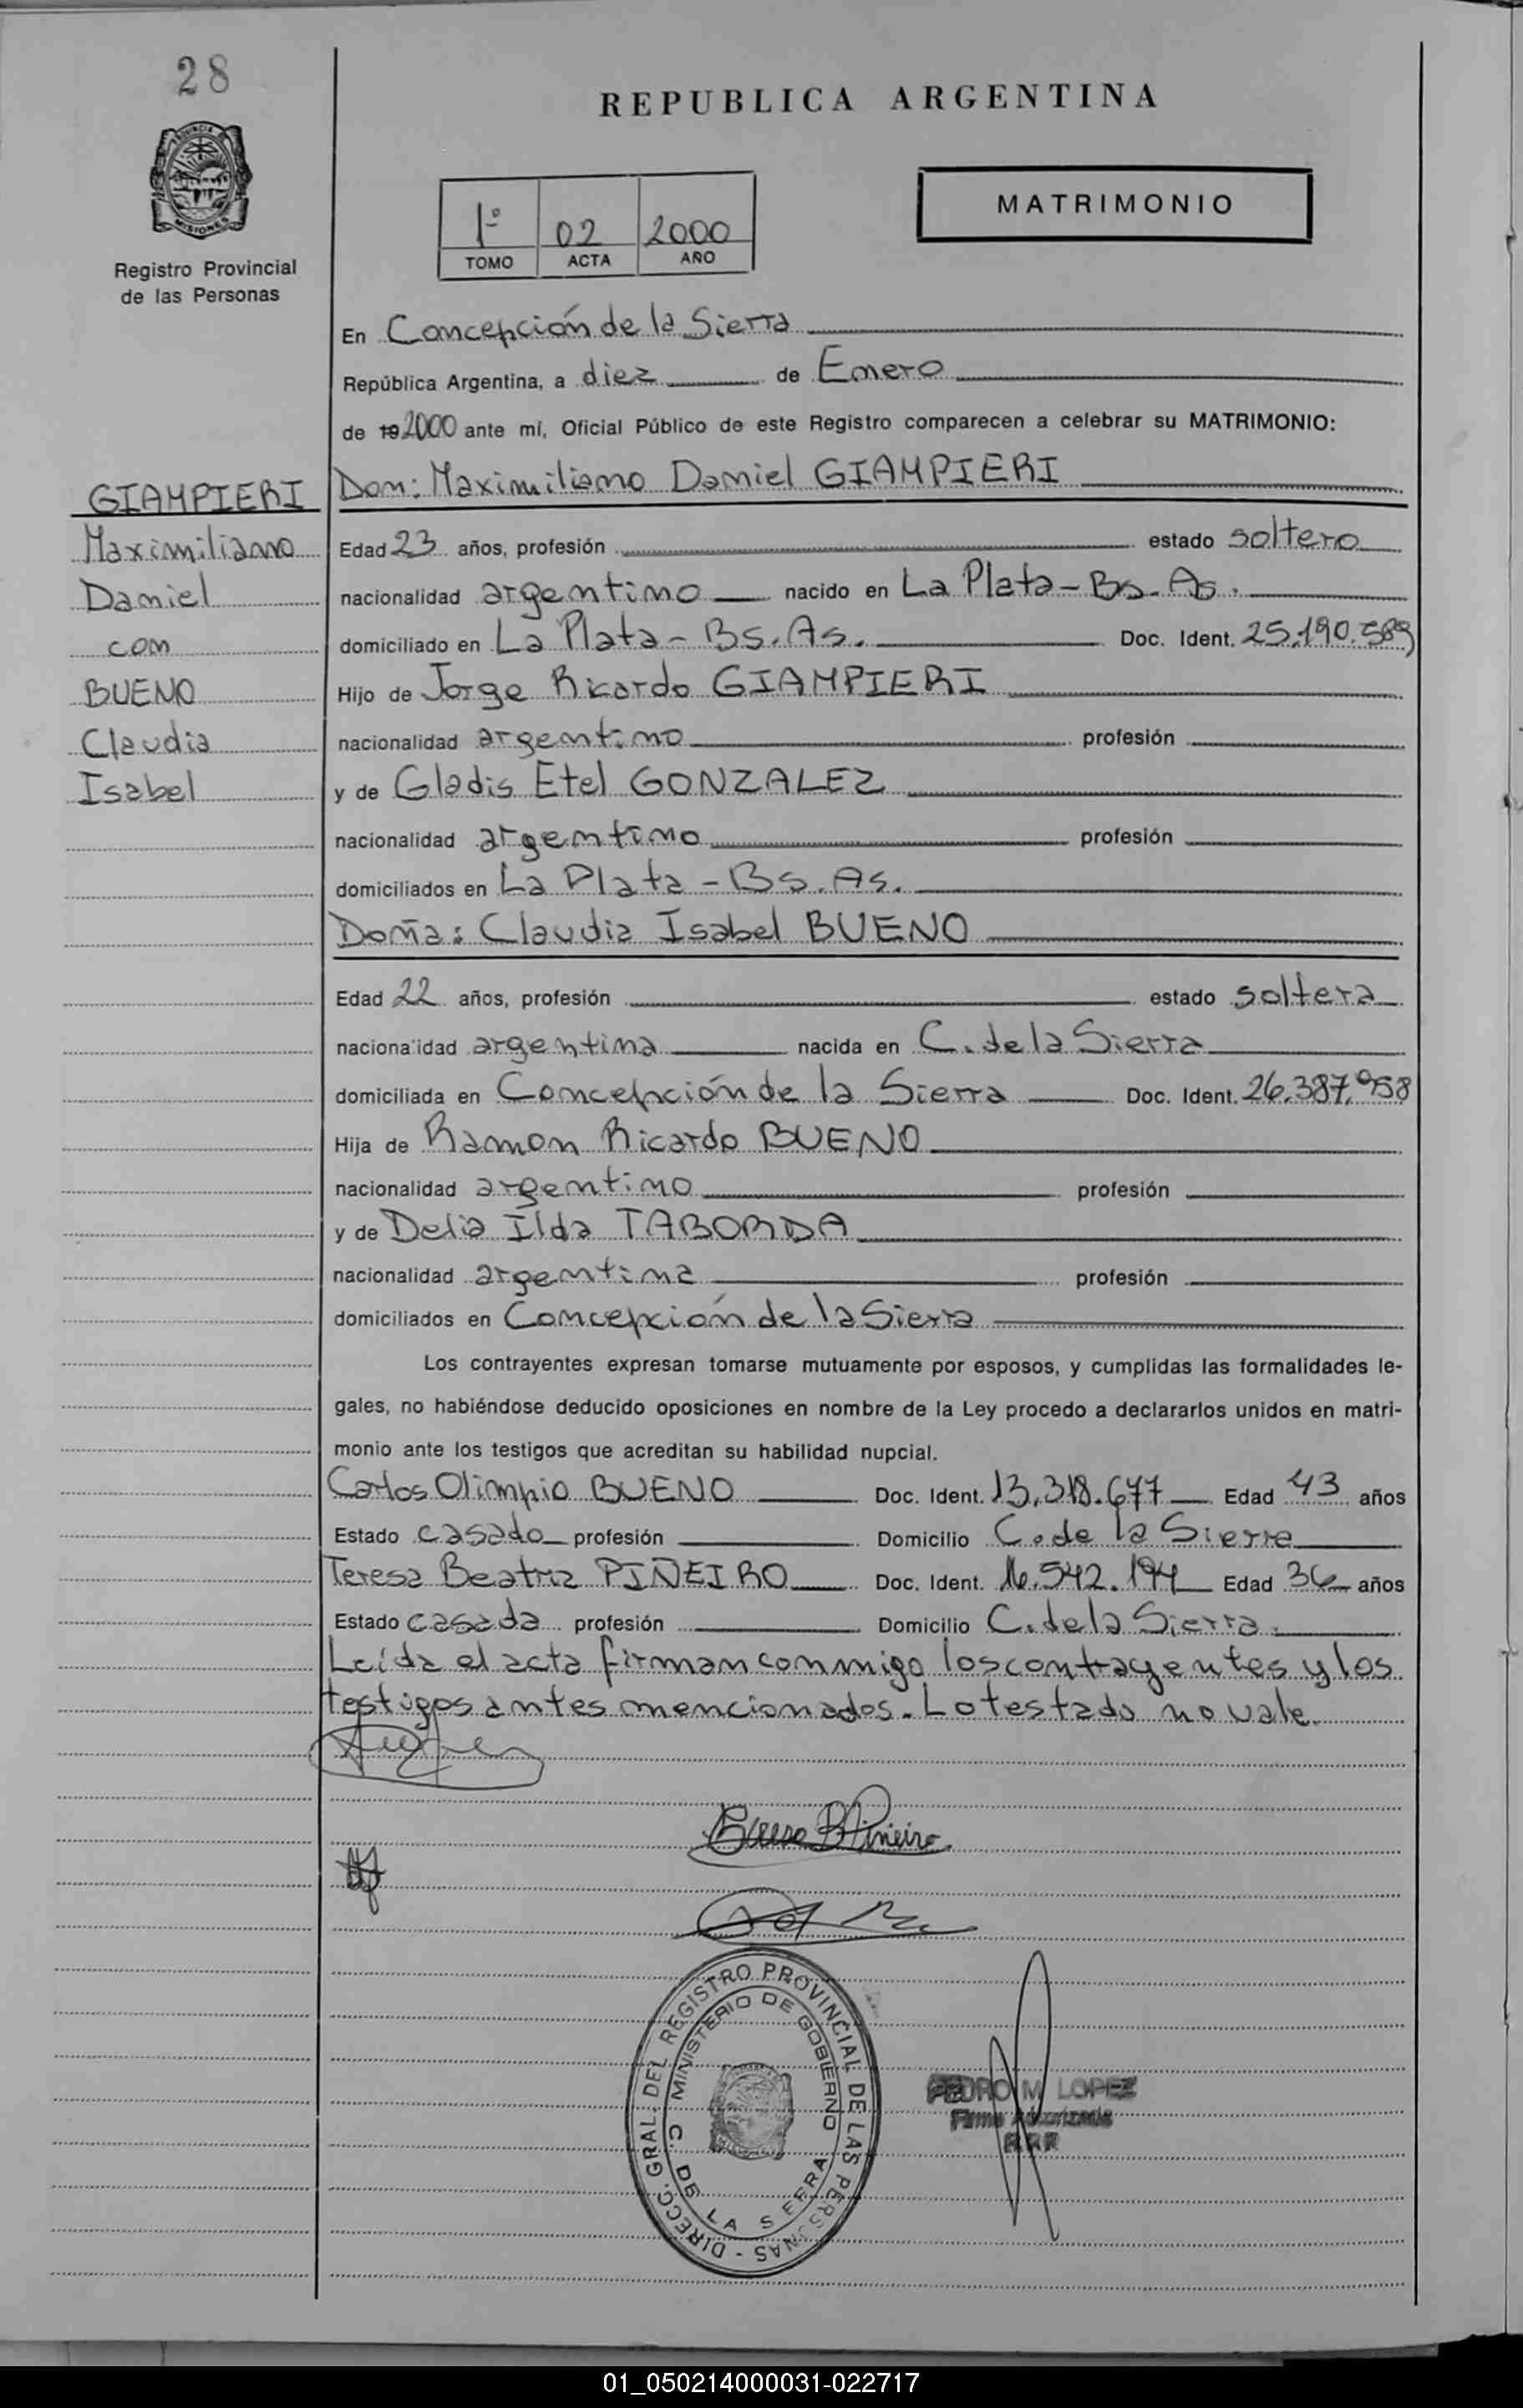 28
REPUBLICA ARGENTINA
MISIONES
Registro Provincial
de las Personas
1º 02 2000
TOMO ACTA AÑO
MATRIMONIO
En Concepción de la Sierra
República Argentina, a diez de Enero
de 19 2000 ante mí, Oficial Público de este Registro comparecen a celebrar su MATRIMONIO:
GIAMPIERI
Maximiliano
Daniel
con
BUENO
Claudia
Isabel
Don: Maximiliano Daniel GIAMPIERI
Edad 23 años, profesión estado soltero
nacionalidad argentino nacido en La Plata - Bs. As.
domiciliado en La Plata - Bs. As. Doc. Ident. 25.190.589
Hijo de Jorge Ricardo GIAMPIERI
nacionalidad argentino profesión
y de Gladis Etel GONZALEZ
nacionalidad argentino profesión
domiciliados en La Plata - Bs. As.
Doña: Claudia Isabel BUENO
Edad 22 años, profesión estado soltera
nacionalidad argentina nacida en C. de la Sierra
domiciliada en Concepción de la Sierra Doc. Ident. 26.387.958
Hija de Ramon Ricardo BUENO
nacionalidad argentino profesión
y de Delia Ilda TABORDA
nacionalidad argentina profesión
domiciliados en Concepción de la Sierra
Los contrayentes expresan tomarse mutuamente por esposos, y cumplidas las formalidades le-
gales, no habiéndose deducido oposiciones en nombre de la Ley procedo a declararlos unidos en matri-
monio ante los testigos que acreditan su habilidad nupcial.
Carlos Olimpio BUENO Doc. Ident. 13.318.677 Edad 43 años
Estado casado profesión Domicilio C. de la Sierra
Teresa Beatriz PIÑEIRO Doc. Ident. 16.542.194 Edad 36 años
Estado casada profesión Domicilio C. de la Sierra.
Leída el acta firman conmigo los contrayentes y los
testigos antes mencionados. Lo testado no vale.
DIRECC. GRAL. DEL REGISTRO PROVINCIAL DE LAS PERSONAS -
MINISTERIO DE GOBIERNO
C. DE LA SIERRA
PEDRO M. LOPEZ
Firma Autorizada
01_050214000031-022717